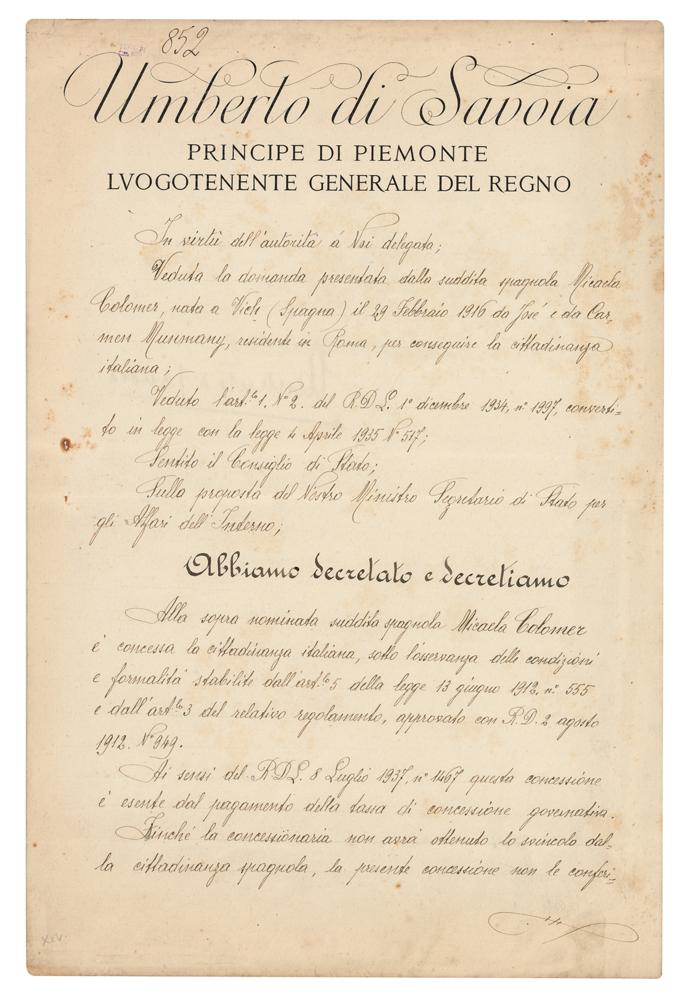 852
Umberto di Savoia
PRINCIPE DI PIEMONTE
LVOGOTENENTE GENERALE DEL REGNO
In virtù dell'autorità á Noi delegata;
Veduta la domanda presentata dalla suddita spagnola Micaela
Colomer, nata a Vich (Spagna) il 29 Febbraio 1916 da José e da Car-
men Munmany, residente in Roma, per conseguire la cittadinanza
italiana;
Veduto l'art.lo 1. N° 2. del R.D.L. 1° dicembre 1934, n° 1997, converti=
to in legge con la legge 4 Aprile 1935 N° 517;
Sentito il Consiglio di Stato;
Sulla proposta del Nostro Ministro Segretario di Stato per
gli Affari dell'Interno;
Abbiamo decretato e decretiamo
Alla sopra nominata suddita spagnola Micaela Colomer
é concessa la cittadinanza italiana, sotto l'osservanza delle condizioni
e formalità stabilite dall'art.lo 5 della legge 13 giugno 1912, n° 555
e dall'art.lo 3 del relativo regolamento, approvato con R.D. 2 agosto
1912. N° 949.
Ai sensi del R.D.L. 8 Luglio 1937, n° 1467 questa concessione
é esente dal pagamento della tassa di concessione governativa.
Finché la concessionaria non avrá ottenuto lo svincolo dal-
la cittadinanza spagnola, la presente concessione non le conferi=